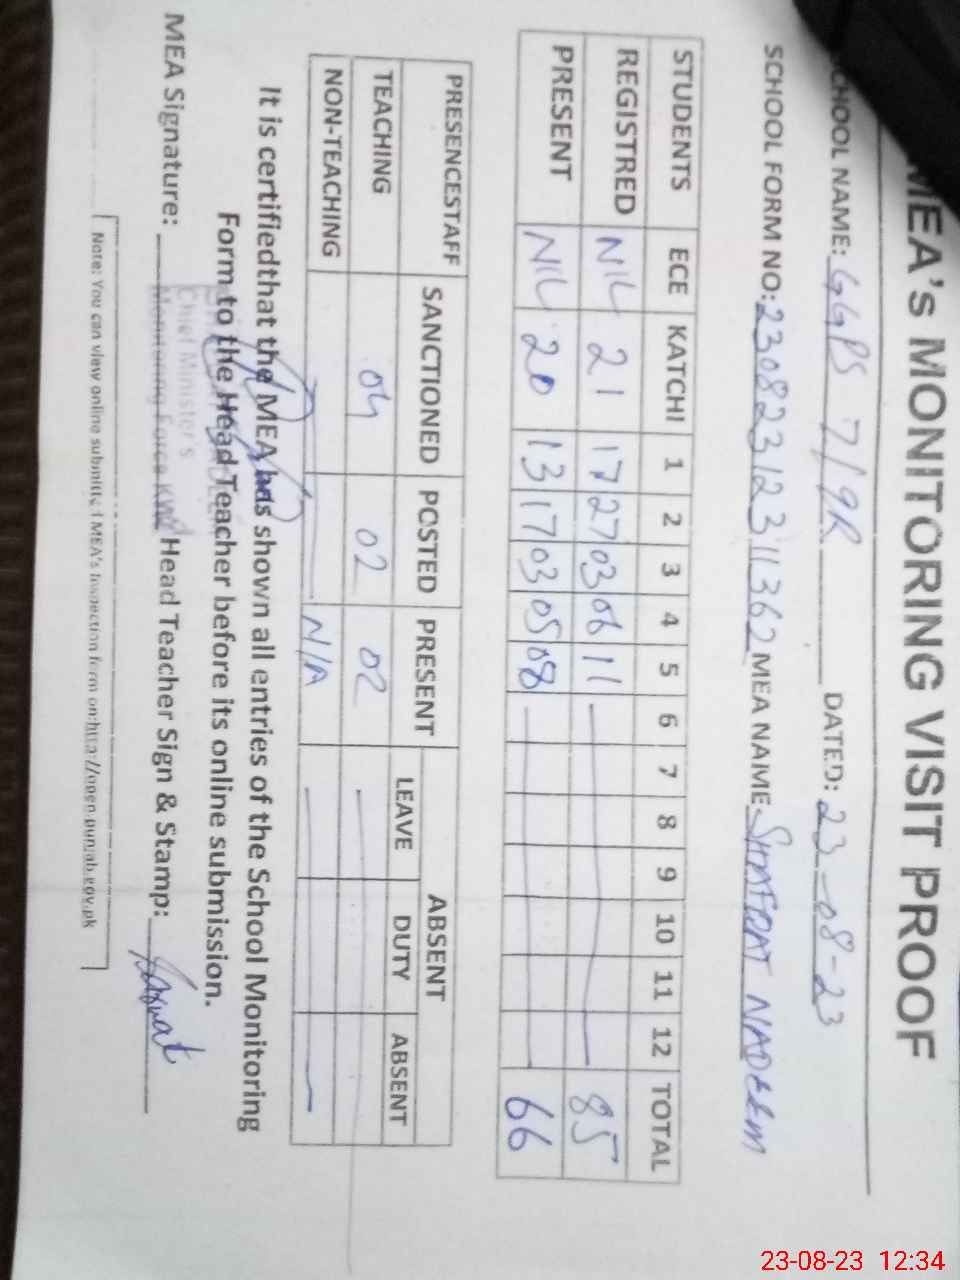 MEA's MONITORING VISIT PROOF
SCHOOL NAME: GGPS 7/9R DATED: 23-08-23
SCHOOL FORM NO: 23082312311362 MEA NAME SHAFQAT NADEEM
STUDENTS ECE KATCHI 1 2 3 4 5 6 7 8 9 10 11 12 TOTAL
REGISTRED NIL 21 17 27 03 06 11 85
PRESENT NIL 20 13 17 03 05 08 66
PRESENCESTAFF SANCTIONED POSTED PRESENT ABSENT
LEAVE DUTY ABSENT
TEACHING 04 02 02
NON-TEACHING N/A
It is certifiedthat the MEA has shown all entries of the School Monitoring
Form to the Head Teacher before its online submission.
Chief Minister's
Monitoring Force KWL
MEA Signature: Head Teacher Sign & Stamp:
Note: You can view online submitted MEA's Inspection form on:http://open.punjab.gov.pk
23-08-23 12:34